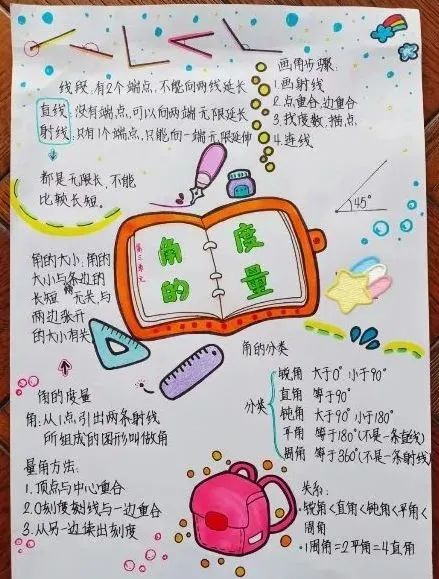 线段:有2个端点,不能向两线延长
直线:没有端点,可以向两端无限延长
射线:只有1个端点,只能向一端无限延伸
都是无限长,不能
比较长短。
画角步骤:
1.画射线
2.点重合,边重合
3.找度数,描点
4.连线
45°
第三单元
角的
度量
角的大小:角的
大小与条边的
长短无关与
两边张开
的大小有关
角的度量
角:从1点,引出两条射线
所组成的图形叫做角
量角方法:
1.顶点与中心重合
2.0刻度线与一边重合
3.从另一边读出刻度
角的分类
分类
锐角 大于0° 小于90°
直角 等于90°
钝角 大于90° 小于180°
平角 等于180°(不是一条直线)
周角 等于360°(不是一条射线)
关系:
·锐角<直角<钝角<平角<
周角
·1周角=2平角=4直角